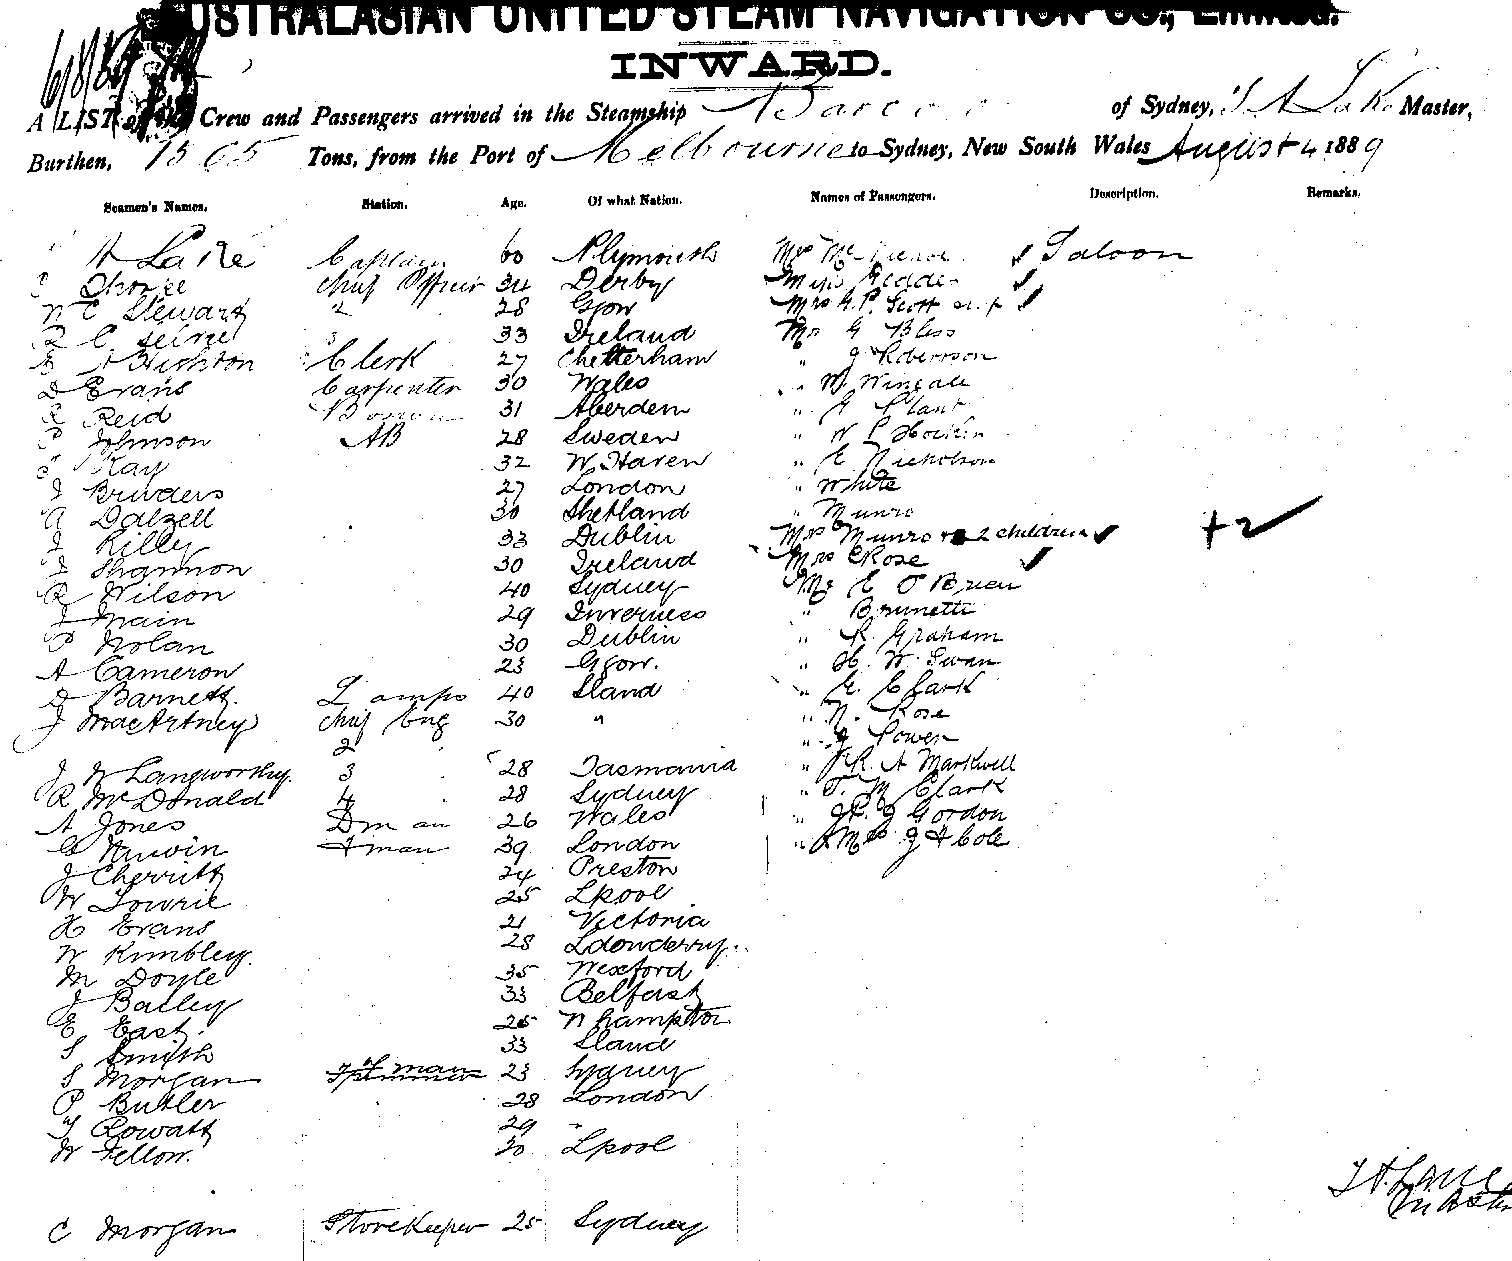 AUSTRALASIAN UNITED STEAM NAVIGATION CO., Limited.
INWARD.
6/8/89
A LIST of the Crew and Passengers arrived in the Steamship Barcoo of Sydney, T A Lake Master,
Burthen, 1505 Tons, from the Port of Melbourne to Sydney, New South Wales August 4 1889
Seamen's Names. Station. Age. Of what Nation. Names of Passengers. Description. Remarks.
A Lake Captain 60 Plymouth Mrs Saloon
Chief Officer 34 Derby Miss
W C Stewart 2 28 Gow Mrs A.P. Scott
33 Ireland Mr G Bliss
Clerk 27 Cheltenham " J Robertson
D Evans Carpenter 30 Wales " W
R Reid 31 Aberdeen " Plant
P Johnson AB 28 Sweden " W
Kay 32 W. Haven " E Nicholson
J Bruders 27 London " White
A Dalzell 30 Shetland " Munro
J Rilley 33 Dublin Mrs Munro + 2 children + 2
J Shannon 30 Ireland Mrs Rose
R Wilson 40 Sydney Mr E O Brien
J Main 29 Inverness " Brunette
P Nolan 30 Dublin " R. Graham
A Cameron 23 Ggow. " H. W. Swan
D Barnett Lamps 40 Sland " E. Clark
J MacArtney Chief Eng 30 " " N. Rose
2 " J Cowen
J W Langworthy. 3 28 Tasmania " R A Markwell
R McDonald 4 28 Sydney " T. M Clark
A Jones Dman 26 Wales " J Gordon
G Nuwin Fman 39 London " Mrs J A Cole
J Cherritt 24 Preston
W Lowrie 25 Lpool
H Evans 21 Victoria
W Kimbley. 28 Ldonderry.
M Doyle 35 Wexford
J Bailey 33 Belfast
E East. 25 Nhampton
S Smith 33 Sland
S Morgan 23 Sydney
P Butler 28 London
T Rowatt 29 "
W Fellow. 20 Lpool
T A Lake
Master
C Morgan Storekeeper 25 Sydney